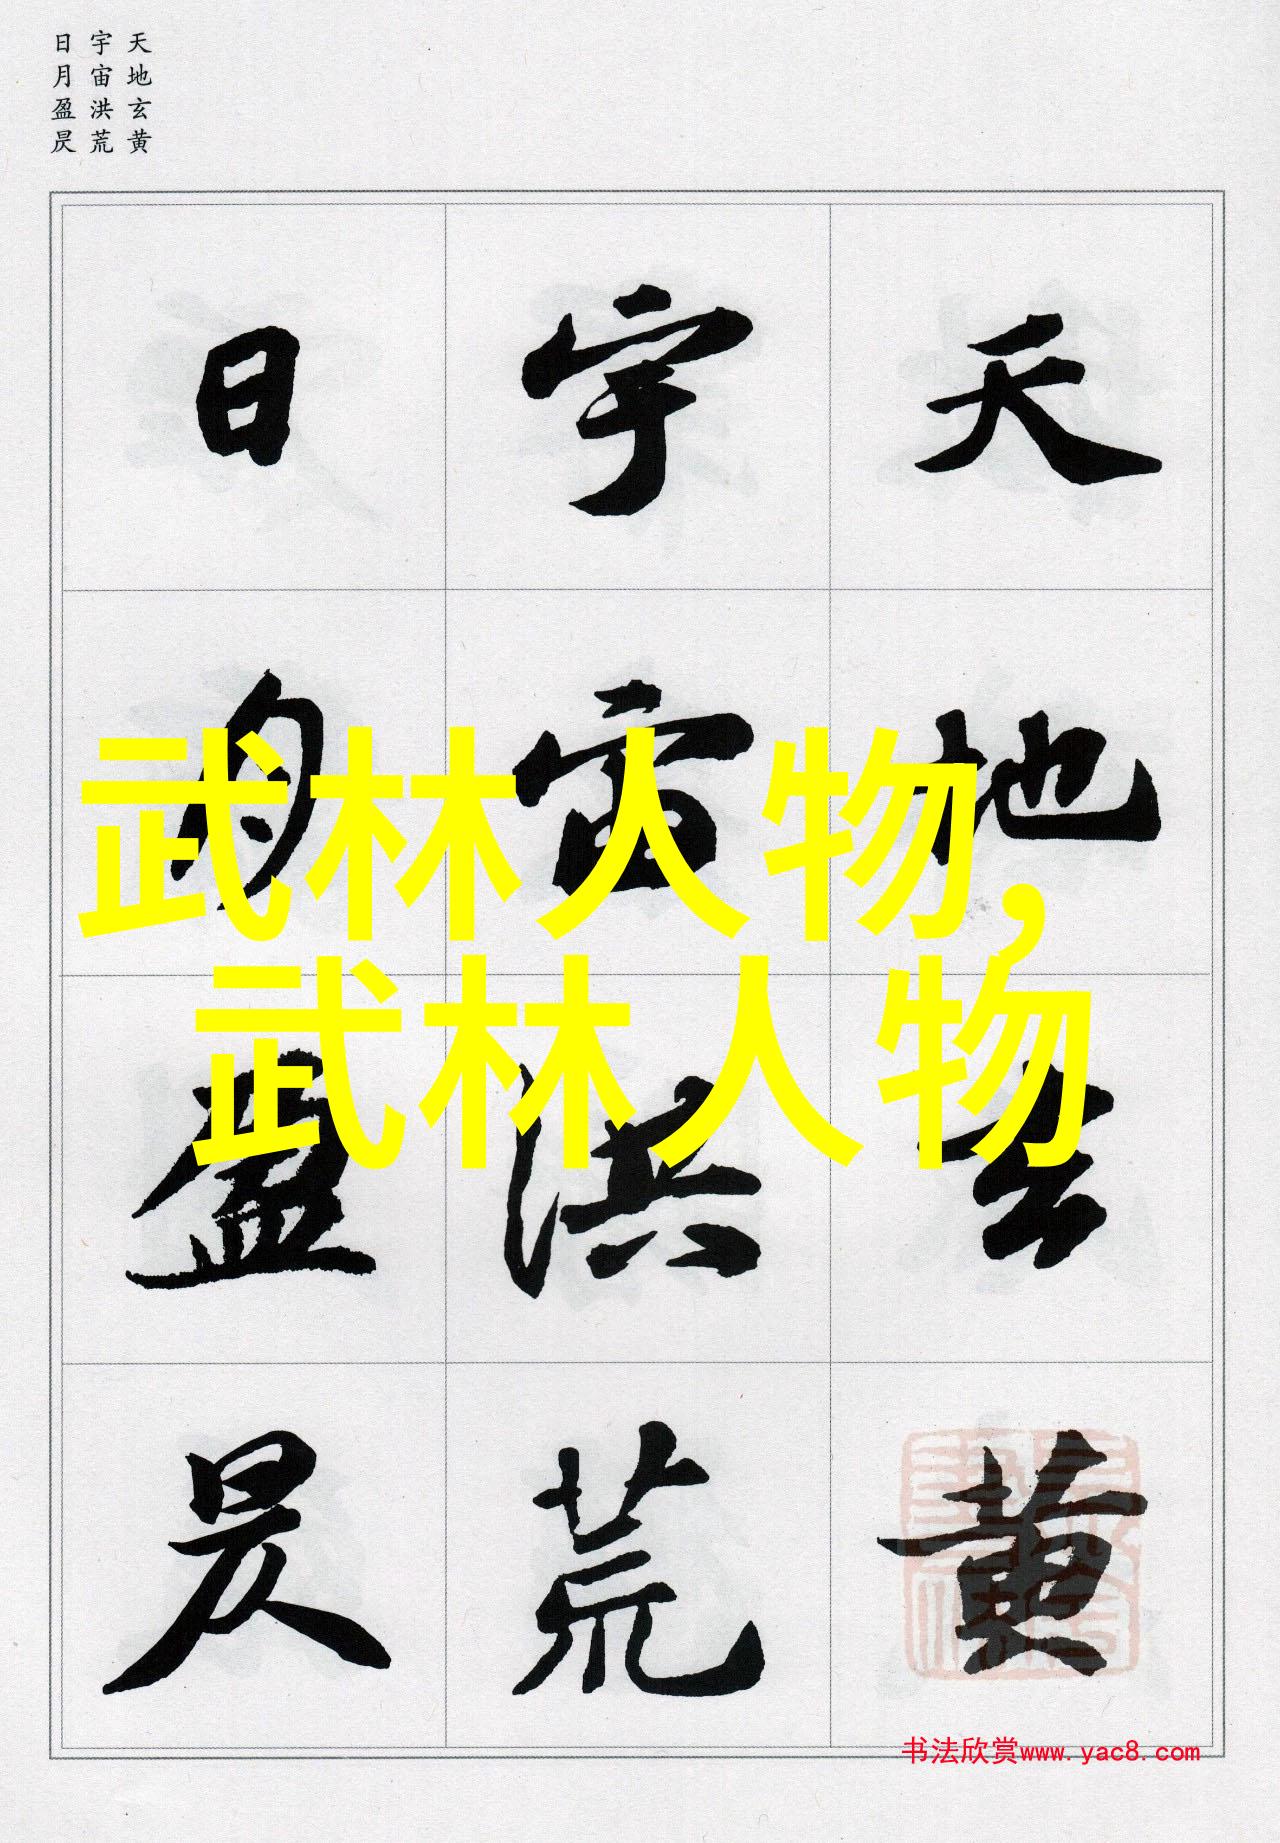 天地玄黄
宇宙洪荒
日月盈昃
天地玄黄
宇宙洪荒
日月盈昃
武林人物,
武林人物
书法欣赏www.yac8.com